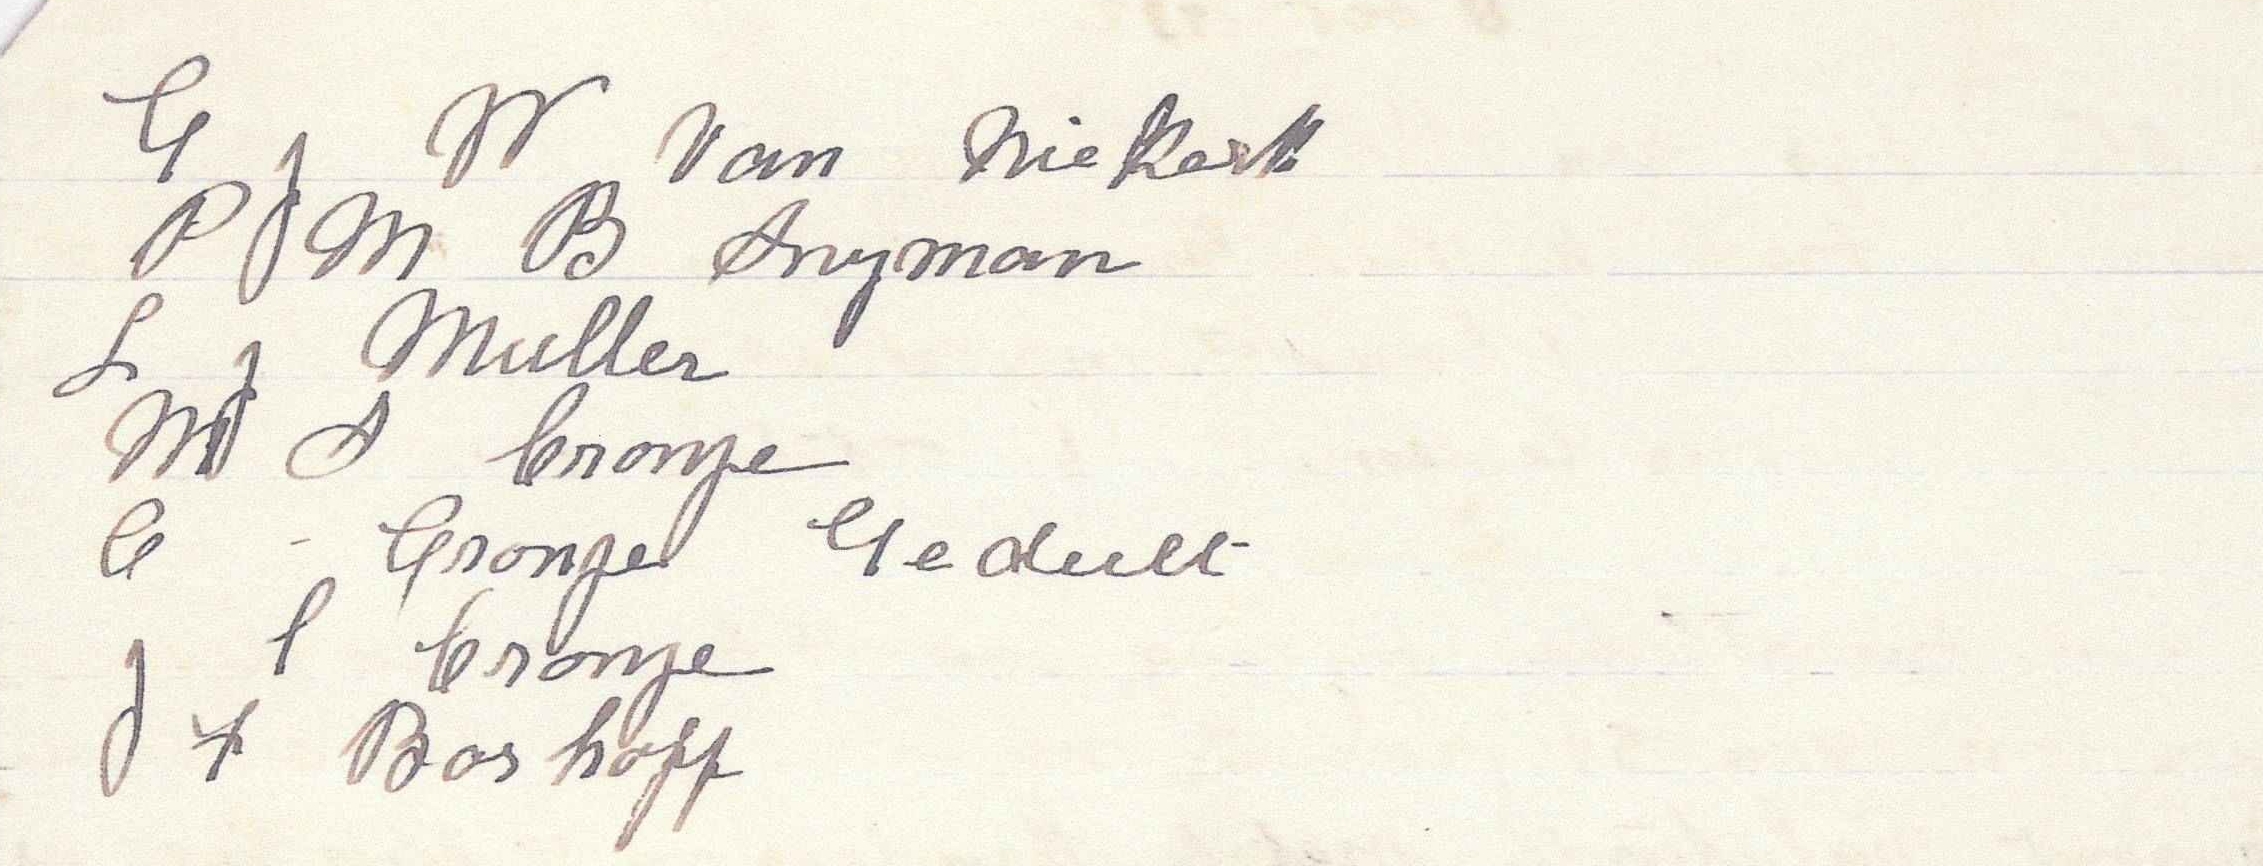 G J W Van Niekerk
P J M B Snyman
L J Muller
M J S Cronje
C - Cronje Gedult
J P Cronje
J F Boshoff